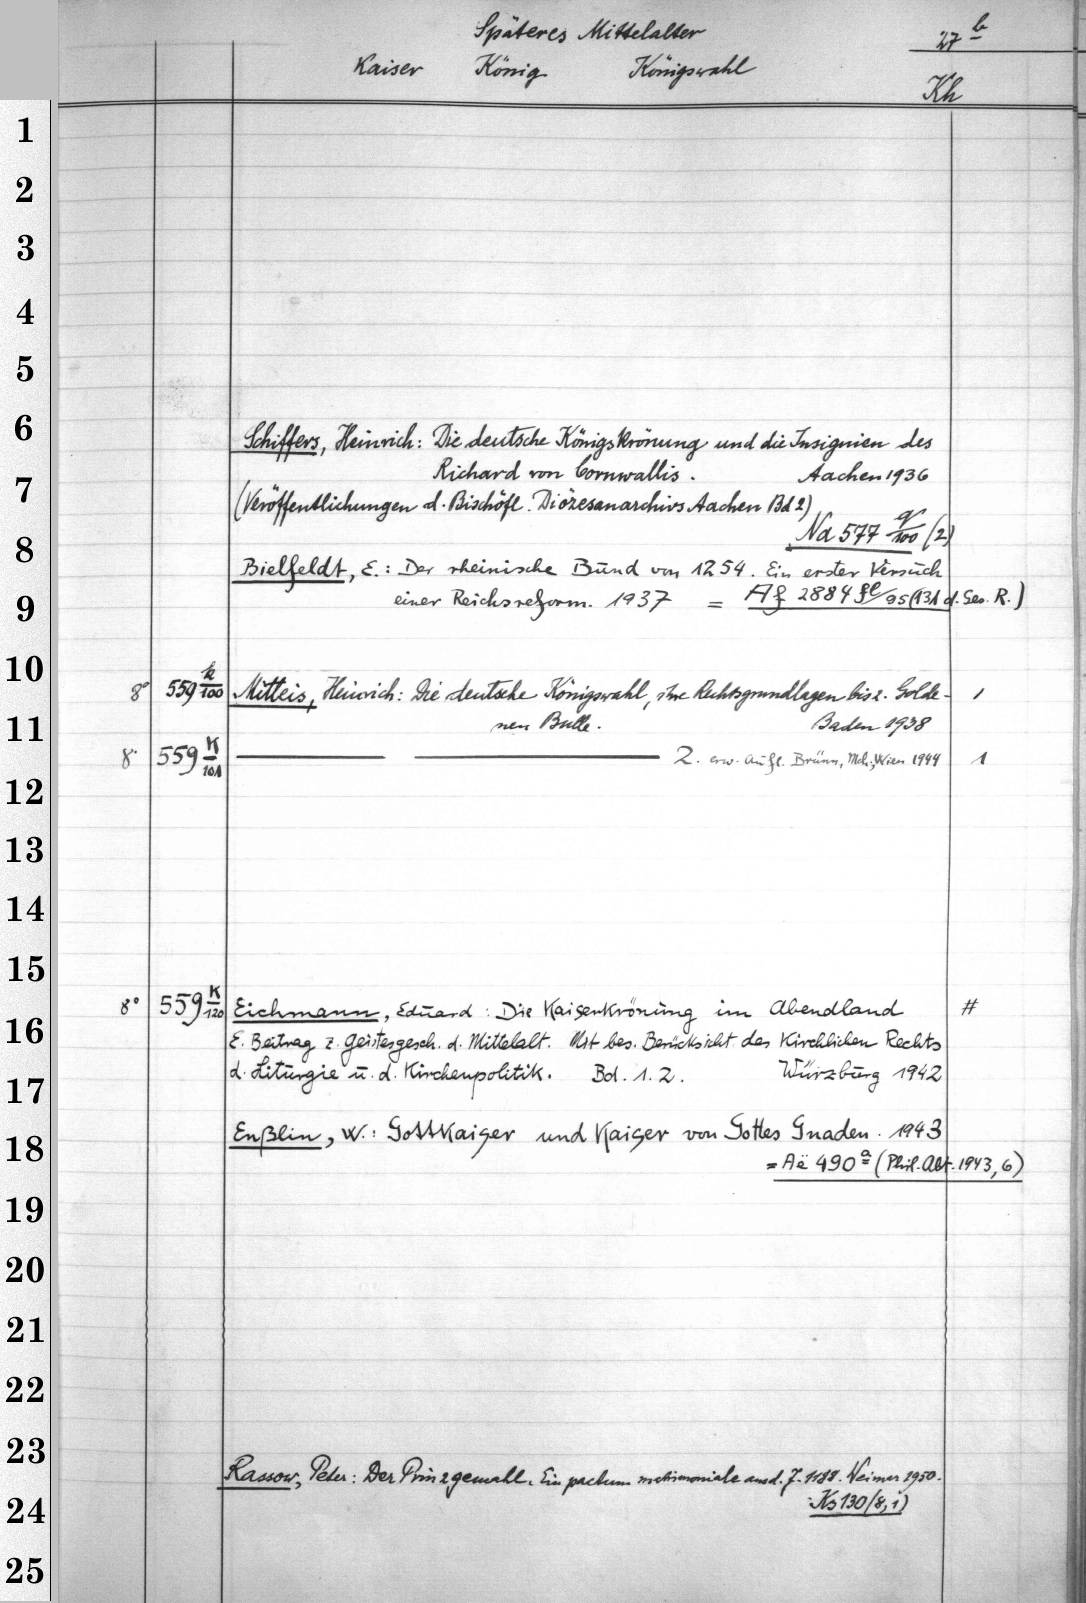 Späteres Mittelalter
27 b
Kaiser König Königswahl
Kh
1
2
3
4
5
6
Schiffers, Heinrich: Die deutsche Königskrönung und die Insignien des
Richard von Cornwallis. Aachen 1936
7
(Veröffentlichungen d. Bischöfl. Diözesanarchivs Aachen Bd 2)
Na 577 q/100 (2)
8
Bielfeldt, E.: Der rheinische Bund von 1254. Ein erster Versuch
9
einer Reichsreform. 1937 = Af 2884 fl/95 (131 d. Ges. R.)
10
8° 559 k/100 Mitteis, Heinrich: Die deutsche Königswahl, ihre Rechtsgrundlagen bis z. Golde- 1
11
nen Bulle. Baden 1938
8° 559 K/101 2. erw. Aufl. Brünn, Mch., Wien 1944 1
12
13
14
15
8° 559 K/120 Eichmann, Eduard: Die Kaiserkrönung im Abendland #
16
E. Beitrag z. Geistesgesch. d. Mittelalt. Mit bes. Berücksicht des Kirchlichen Rechts
17
d. Liturgie u. d. Kirchenpolitik. Bd. 1. 2. Würzburg 1942
18
Enßlin, W.: Gottkaiser und Kaiser von Gottes Gnaden. 1943
= Aë 490 a (Phil. Abt. 1943, 6)
19
20
21
22
23
Rassow, Peter: Der Prinzgemahl. Ein pactum matrimoniale aus d. J. 1188. Weimar 1950.
24
Ks 130 (8, 1)
25